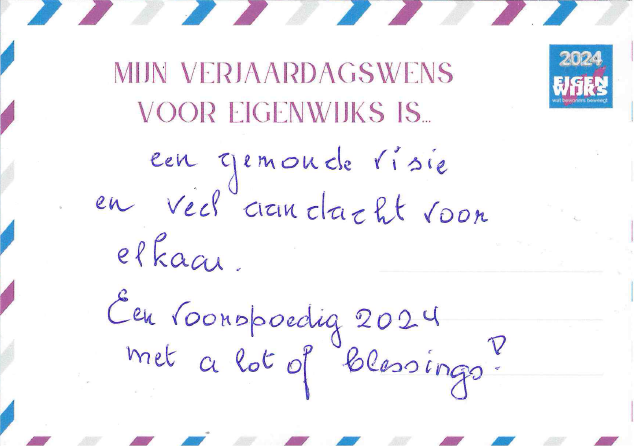 MIJN VERJAARDAGSWENS
VOOR EIGENWIJKS IS...
2024
EIGEN
WIJKS
wat bewoners beweegt
een gemoude visie
en veel aandacht voor
elkaar.
Een voorspoedig 2024
met a lot of blessings!